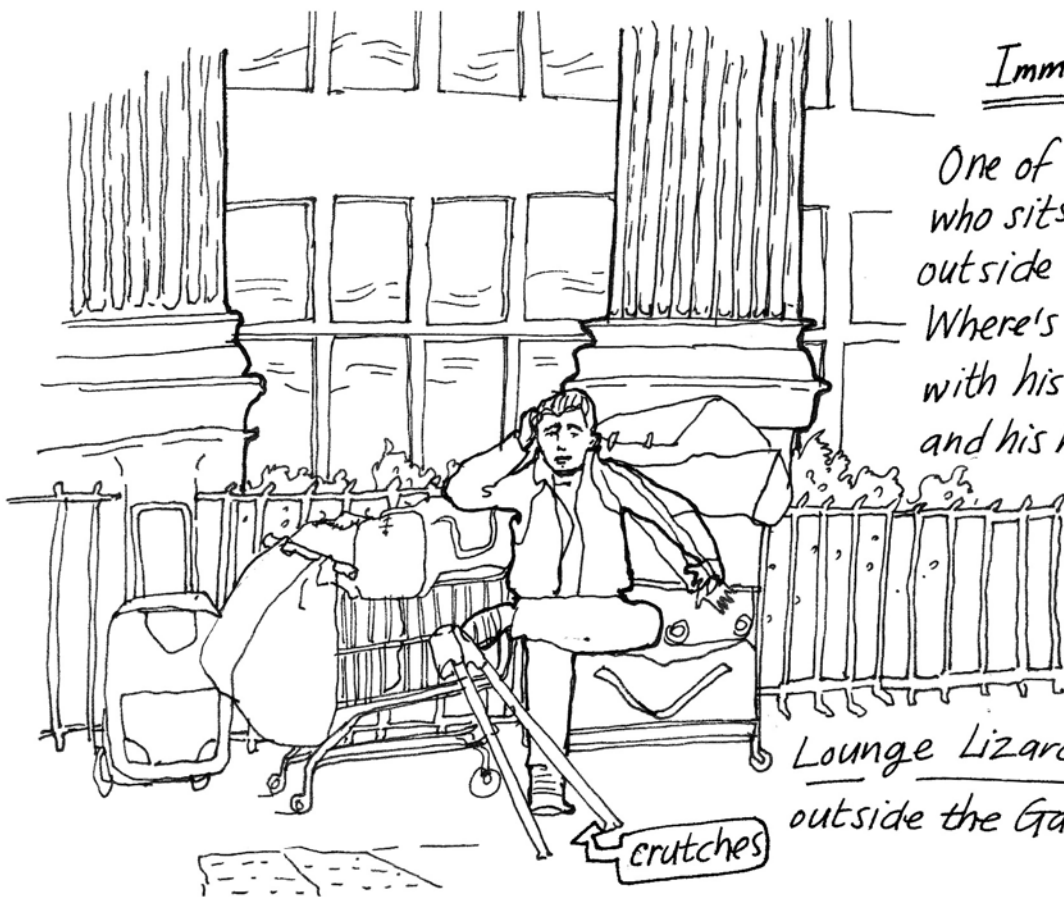 Imm
One of
who sits
outside
Where's
with his
and his
Lounge Lizard
outside the Ga
crutches